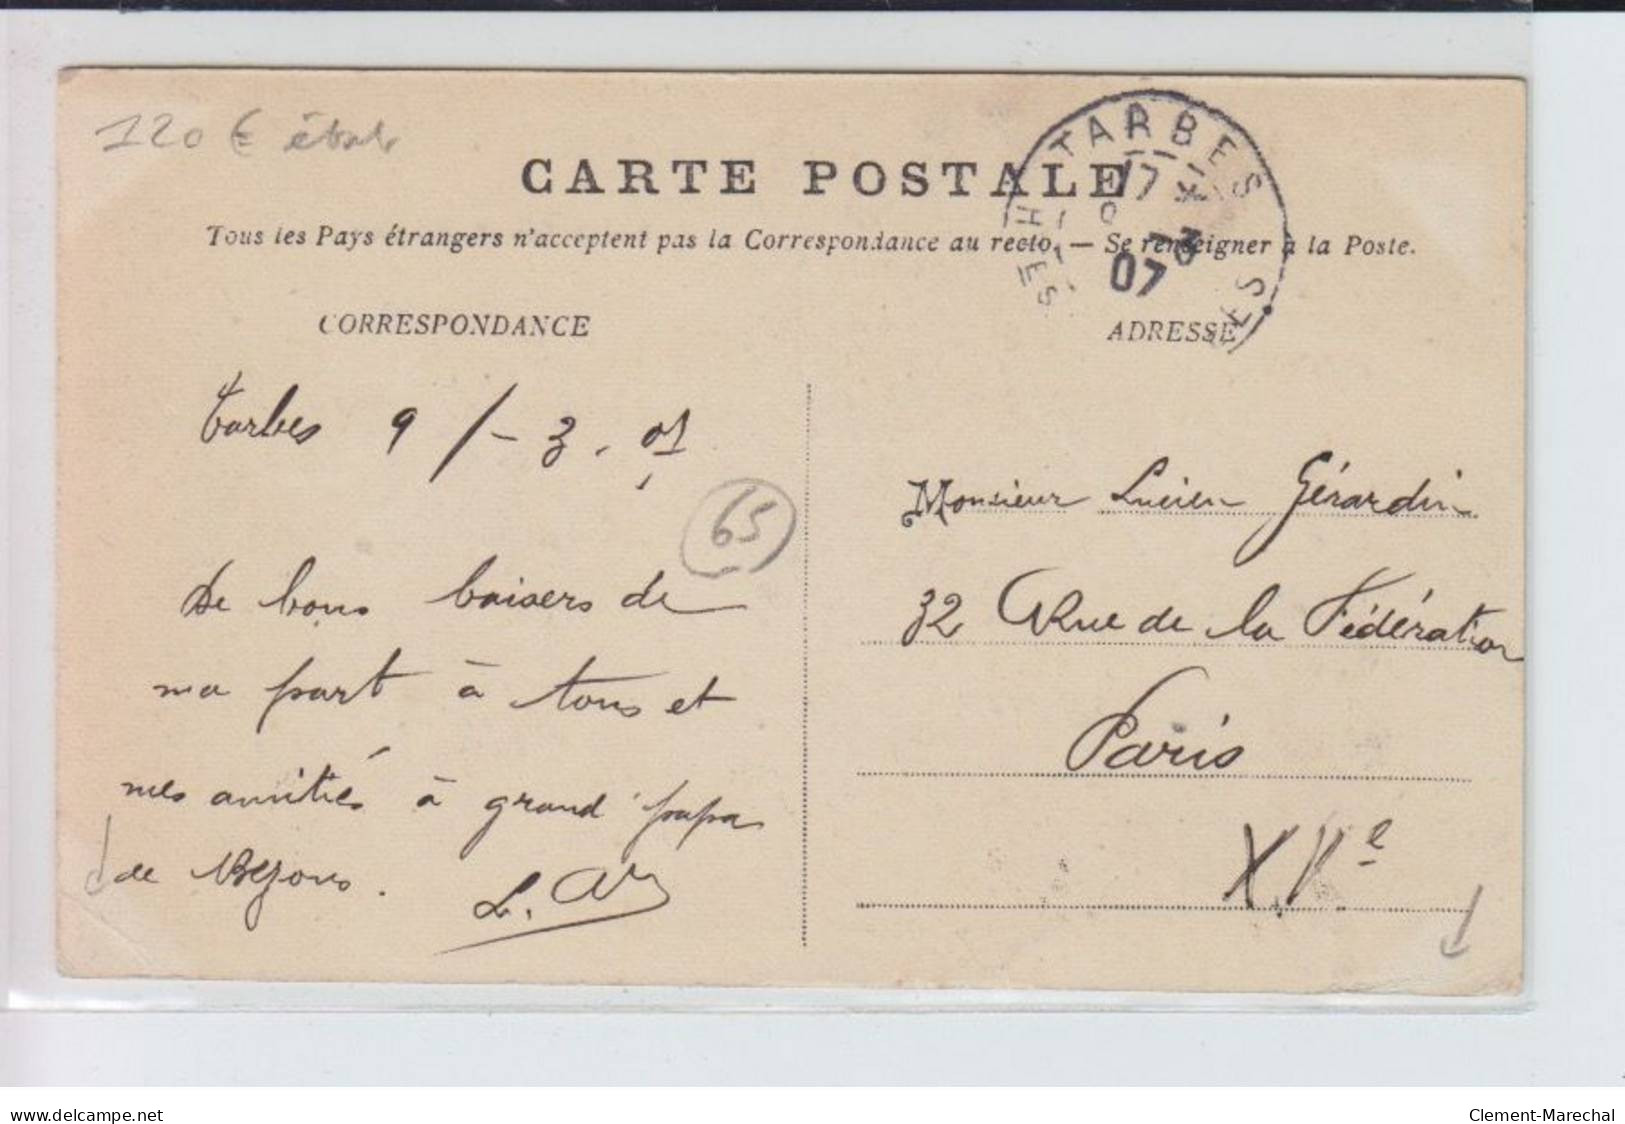 120 € état
CARTE POSTALE
Tous les Pays étrangers n'acceptent pas la Correspondance au recto. — Se renseigner à la Poste.
TARBES
17
9 - 3
07
CORRESPONDANCE
ADRESSE
Tarbes 9/-3.07
65
De bons baisers de
ma part à tous et
mes amitiés à grand papa
de Bezons.
Monsieur Lucien Gérardin
32 Rue de la Fédération
Paris
XVe
www.delcampe.net
Clement-Marechal